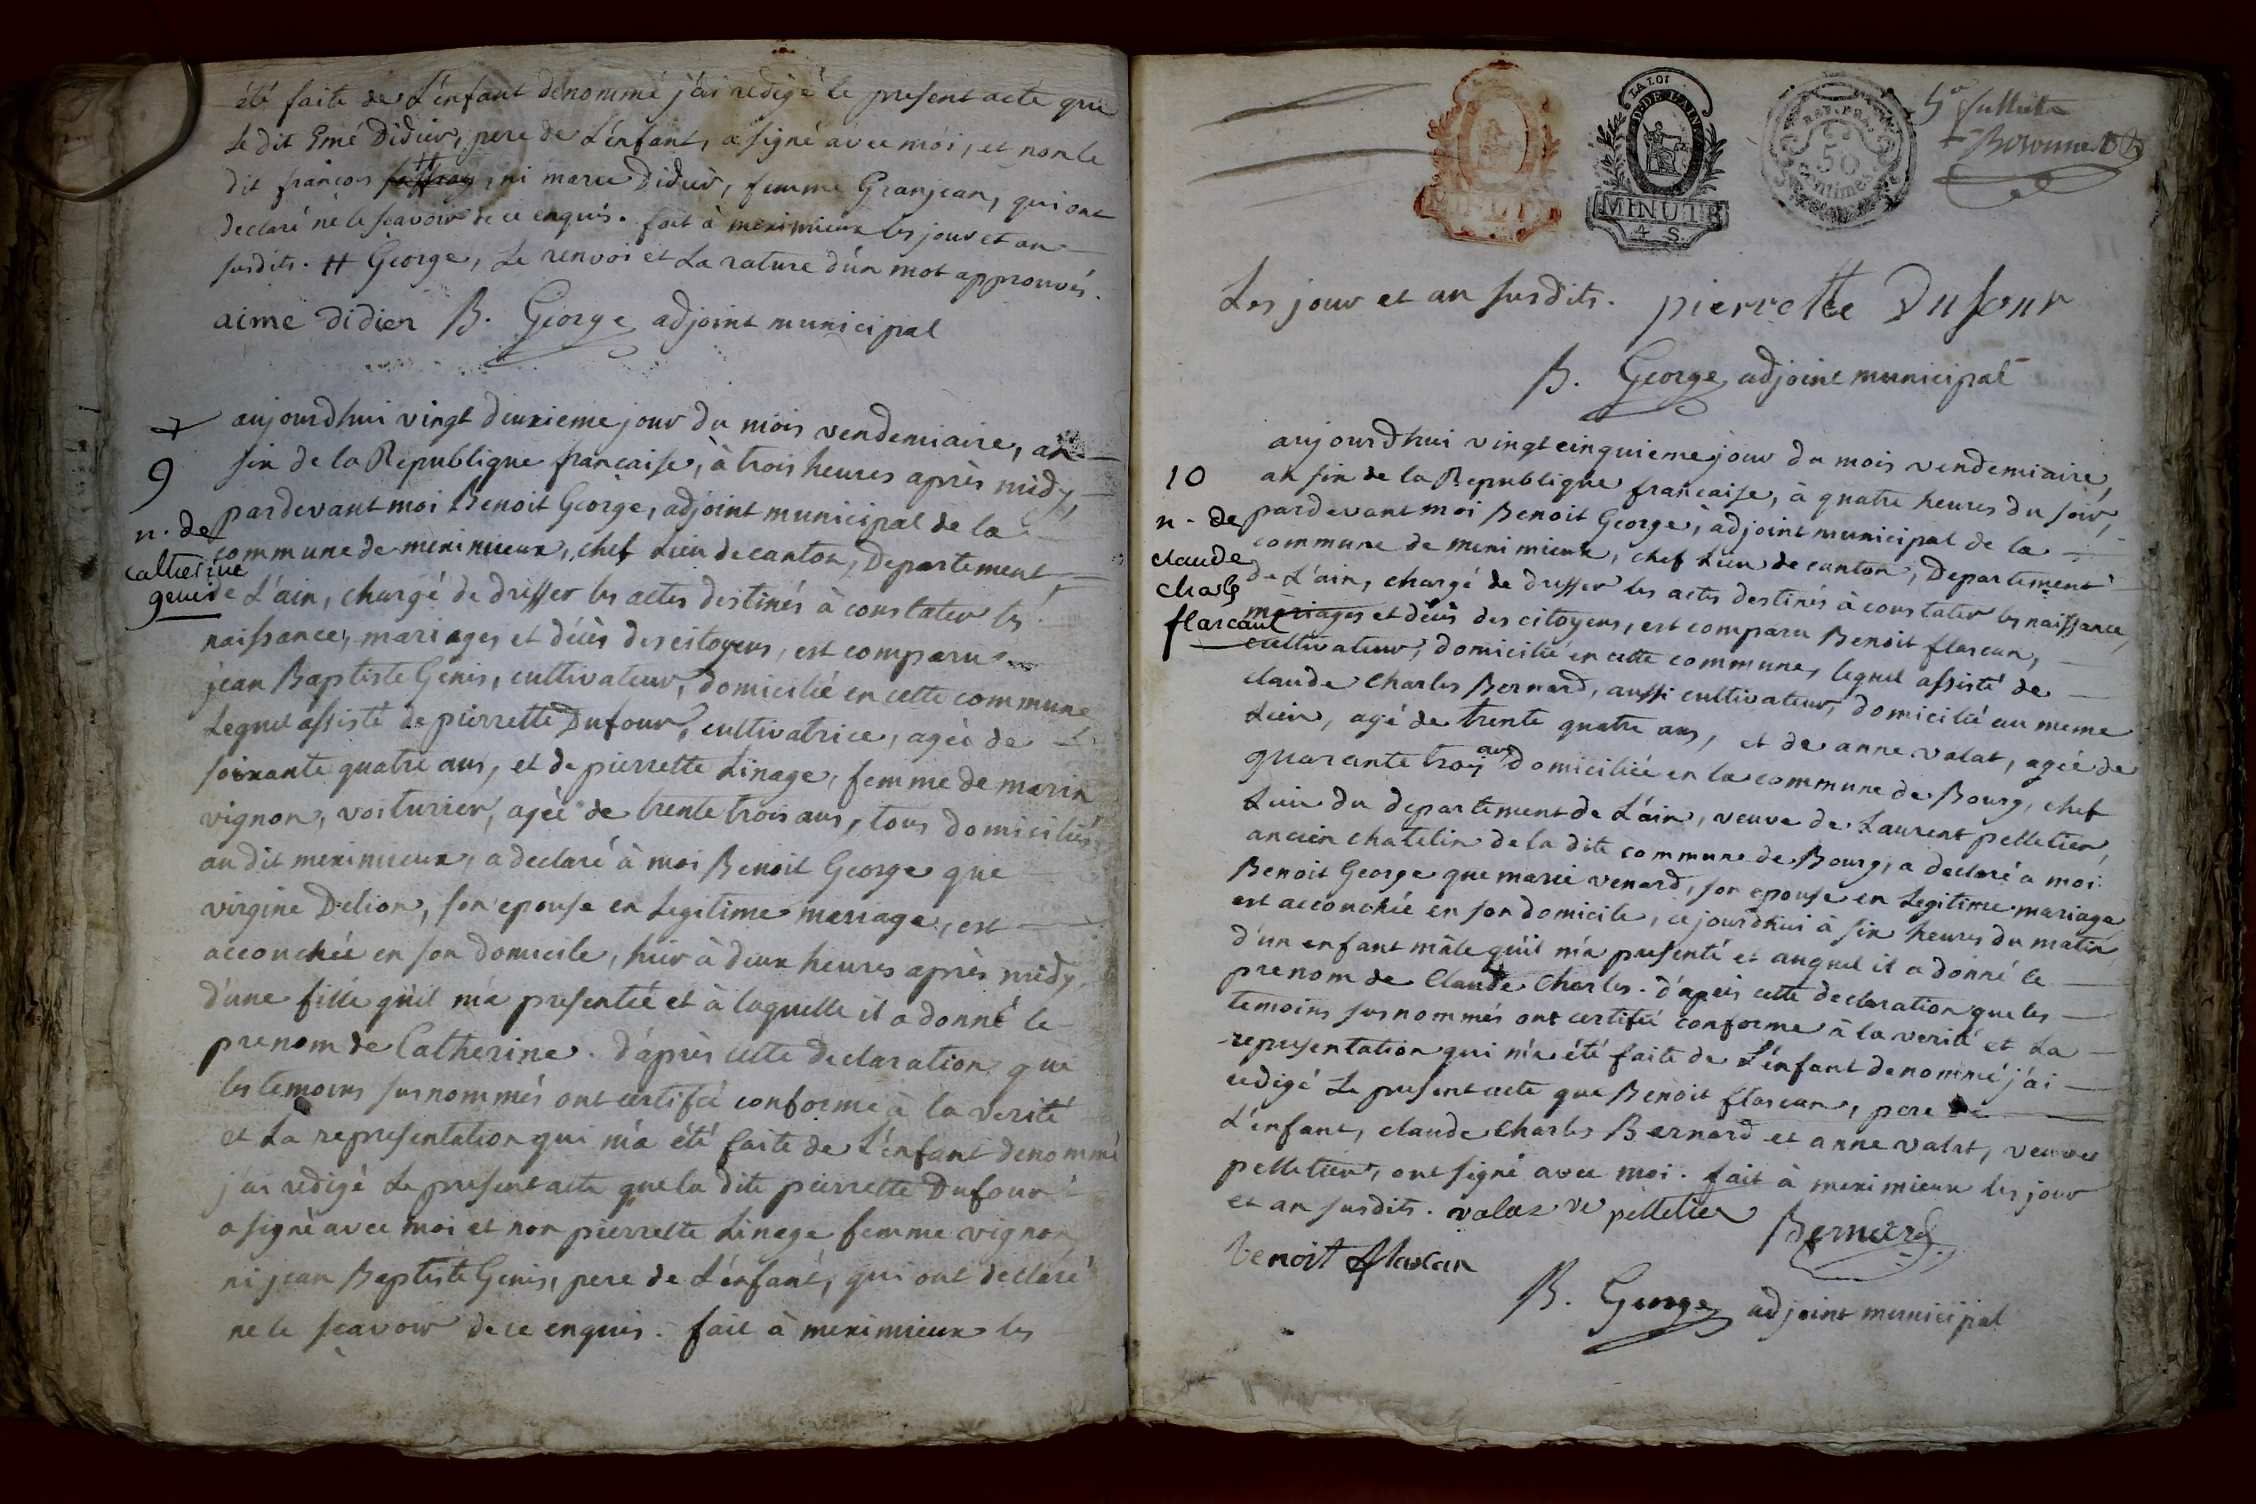 été faite de L'enfant dénommé j'ai redigé le present acte que
Le dit Emé Didier, pere de L'enfant, a signé avec moi, et non le
dit françois ⧺ , ni marie Didier, femme Granjean, qui ont
declaré ne le sçavoir de ce enquis. fait à meximieux les jour et an
susdits. ⧺ George, Le renvoi et La rature d'un mot approuvés.
aime didier B. George adjoint municipal
9
n. de
catherine
genis
aujourdhui vingt deuxieme jour du mois vendemiaire, an
six de la Republique francaise, à trois heures après midy,
pardevant moi Benoit George, adjoint municipal de la
commune de meximieux, chef Lieu de canton, Departement
de L'ain, chargé de dresser les actes destinés à constater les
naissance, mariages et décès des citoyens, est comparu
jean Baptiste Genis, cultivateur, domicilié en cette commune
Lequel assisté de pierrette Dufour, cultivatrice, agée de
soixante quatre ans, et de pierrette Linage, femme de marin
vignon, voiturier, agée de trente trois ans, tous domiciliés
au dit meximieux, a declaré à moi Benoit George que
virgine Delion, son epouse en Legitime mariage, est
accouchée en son domicile, hier à deux heures après midy,
d'une fille qu'il m'a presentée et à laquelle il a donné le
prenom de Catherine. d'après cette declaration que
les temoins susnommés ont certifié conforme à la verité
et La representation qui m'a été faite de L'enfant denommé
j'ai redigé Le present acte que la dite pierrette Dufour
a signé avec moi et non pierrette Linage femme vignon
ni jean Baptiste Genis, pere de L'enfant, qui ont declaré
ne le sçavoir de ce enquis. fait à meximieux les
LA LOI
MINUTE
4 S.
REP. FRA.
50
Centimes
Les jour et an susdits. pierrette Dufour
B. George adjoint municipal
10
n. de
claude
charles
flascant
aujourdhui vingt cinquieme jour du mois vendemiaire,
an six de la Republique francaise, à quatre heures du soir,
pardevant moi Benoit George, adjoint municipal de la
commune de meximieux, chef Lieu de canton, Departement
de L'ain, chargé de dresser les actes destinés à constater les naissance,
mariages et décès des citoyens, est comparu Benoit flascan,
cultivateur, domicilié en cette commune, lequel assisté de
claude Charles Bernard, aussi cultivateur, domicilié au meme
Lieu, agé de trente quatre ans, et de anne valat, agée de
quarante trois ans domiciliée en la commune de Bourg, chef
Lieu du departement de L'ain, veuve de Laurent pelletier,
ancien chatelin de la dite commune de Bourg, a declaré à moi
Benoit George que marie venard, son epouse en Legitime mariage
est accouchée en son domicile, ce jourdhui à six heures du matin
d'un enfant mâle qu'il m'a presenté et auquel il a donné le
prenom de Claude Charles. d'après cette declaration que les
temoins susnommés ont certifié conforme à la verité et La
representation qui m'a été faite de L'enfant denommé j'ai
redigé Le present acte que Benoit flascan, pere de
L'enfant, claude Charles Bernard et anne valat, veuve
pelletier, ont signé avec moi. fait à meximieux les jour
et an susdits. valat ve pelletier Bernard
benoit flascan
B. George adjoint municipal